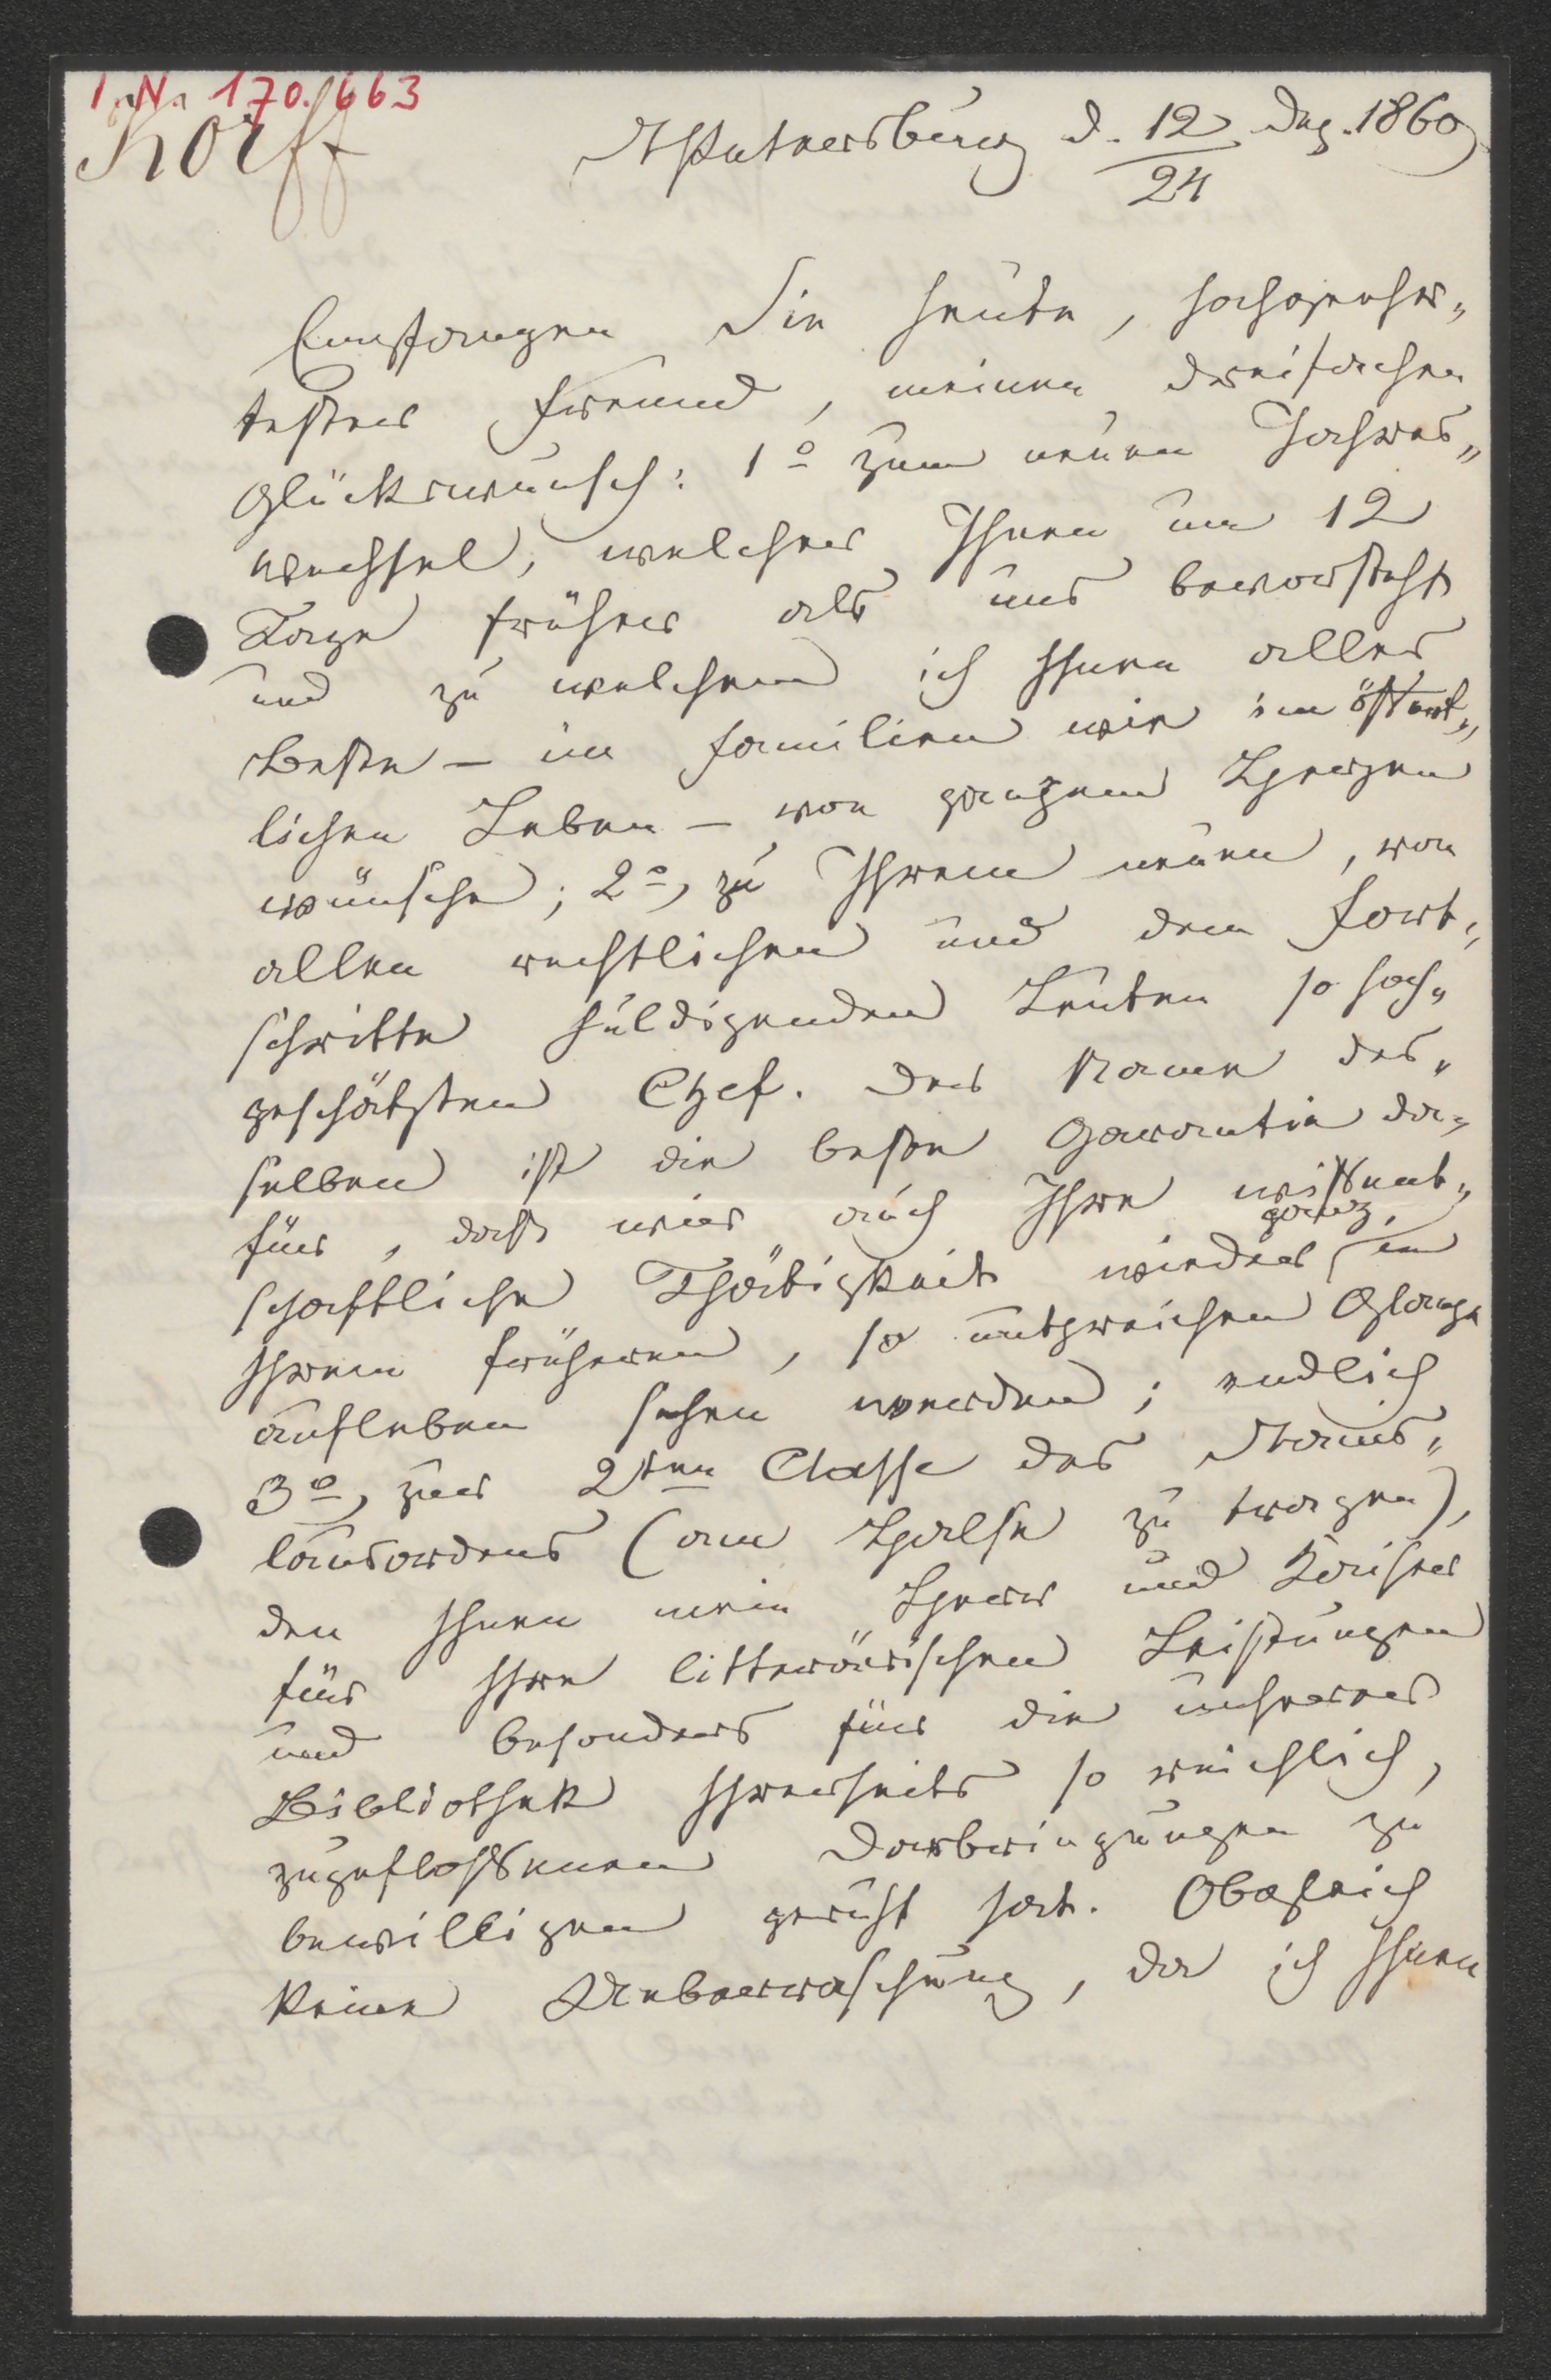 I.N. 170.663
Korff
St Petersburg d. 12 Dez. 1860
24
Empfangen Sie heute, hochgeehr„
tester Freund, meinen dreifachen
Glückwunsch: 1º zum neuen Jahres„
wechsel, welcher Ihnen um 12
Tage früher als uns bevorsteht
und zu welchem ich Ihnen alles
Beste – im Familien wie im öffent„
lichen Leben – von ganzem Herzen
wünsche; 2º, zu Ihrem neuen, von
allen rechtlichen und dem Fort„
schritte huldigenden Leuten so hoch„
geschätzten Chef. Der Name des„
selben ist die beste Garantie da„
für, daß wir auch Ihre wissent„
schaftliche Thätigkeit wieder ganz in
Ihrem früheren, so umfangreichen Glanze
aufleben sehen werden; endlich
3º, zur 2ten Classe des Stanis„
lausordens (am Halse zu tragen),
den Ihnen mein Herr und Kaiser
für Ihre litterärischen Leistungen
und besonders für die unserer
Bibliothek Ihrerseits so reichlich,
zugeflossenen Darbringungen zu
bewilligen geruht hat. Obgleich
keine Ueberraschung, da ich Ihnen